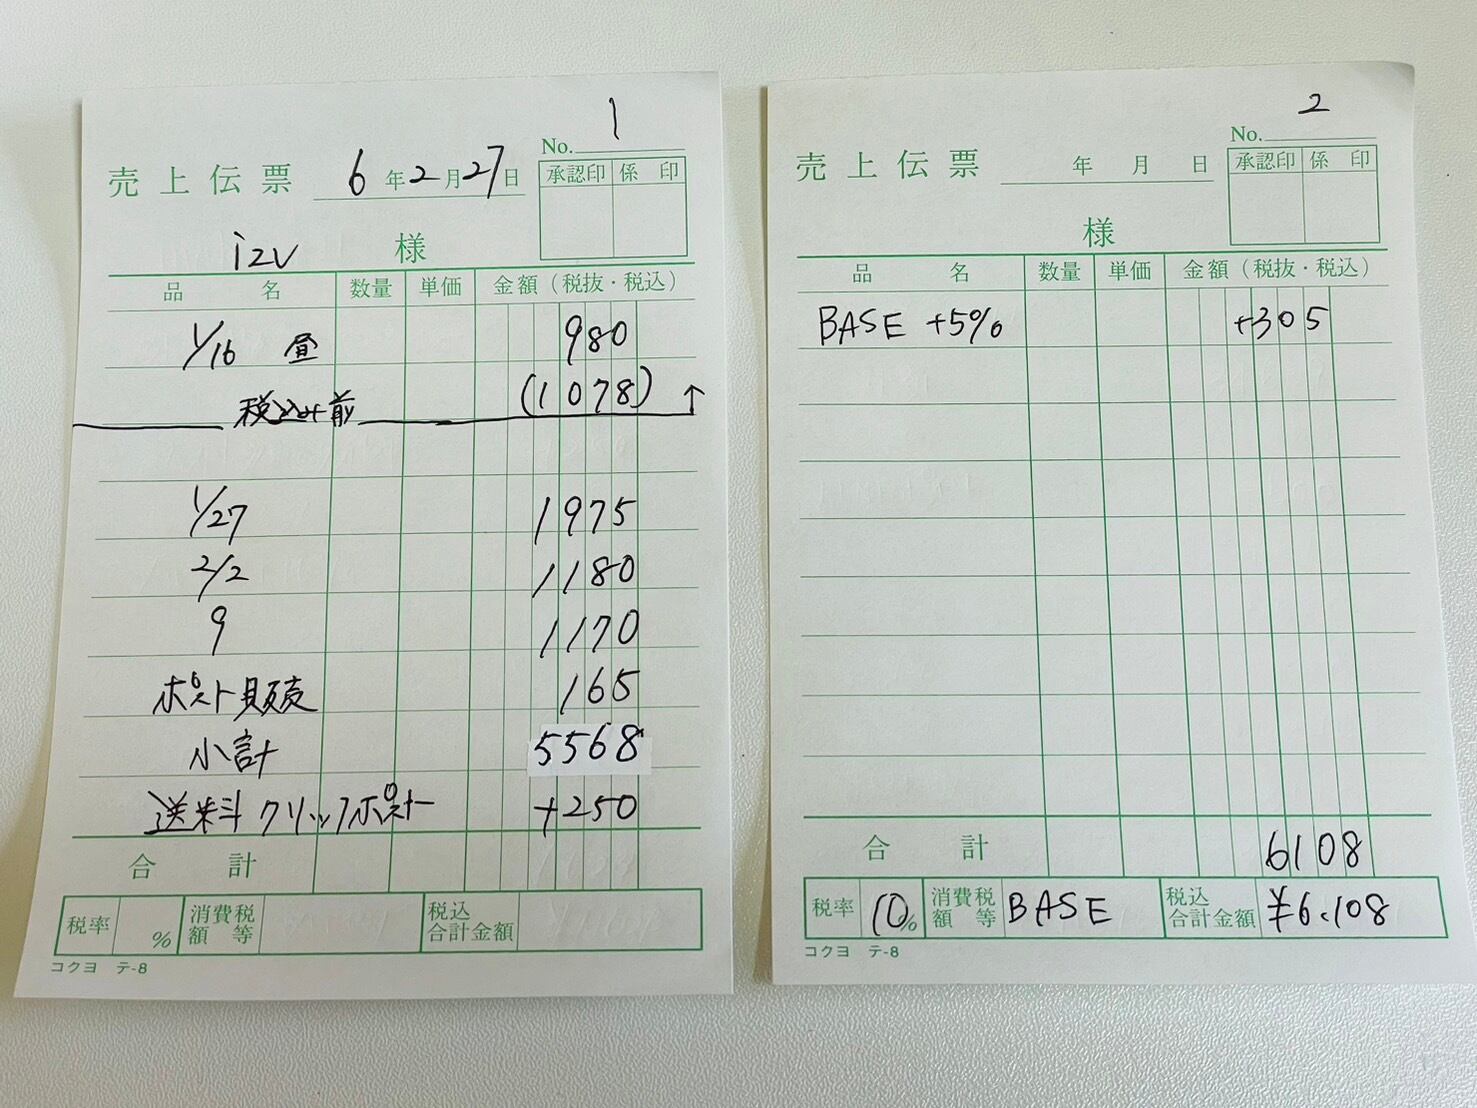 No. 1
売上伝票 6年2月27日
承認印 係印
izu 様
品名 数量 単価 金額（税抜・税込）
1/16 昼 980
税込み前 (1078) ↑
1/27 1975
2/2 1180
9 1170
ポスト販売 165
小計 5568
送料 クリックポスト +250
合計
税率 % 消費税額等 税込合計金額
コクヨ テ-8
No. 2
売上伝票 年 月 日
承認印 係印
様
品名 数量 単価 金額（税抜・税込）
BASE +5% +305
合計 6108
税率 10% 消費税額等 BASE 税込合計金額 ¥6.108
コクヨ テ-8